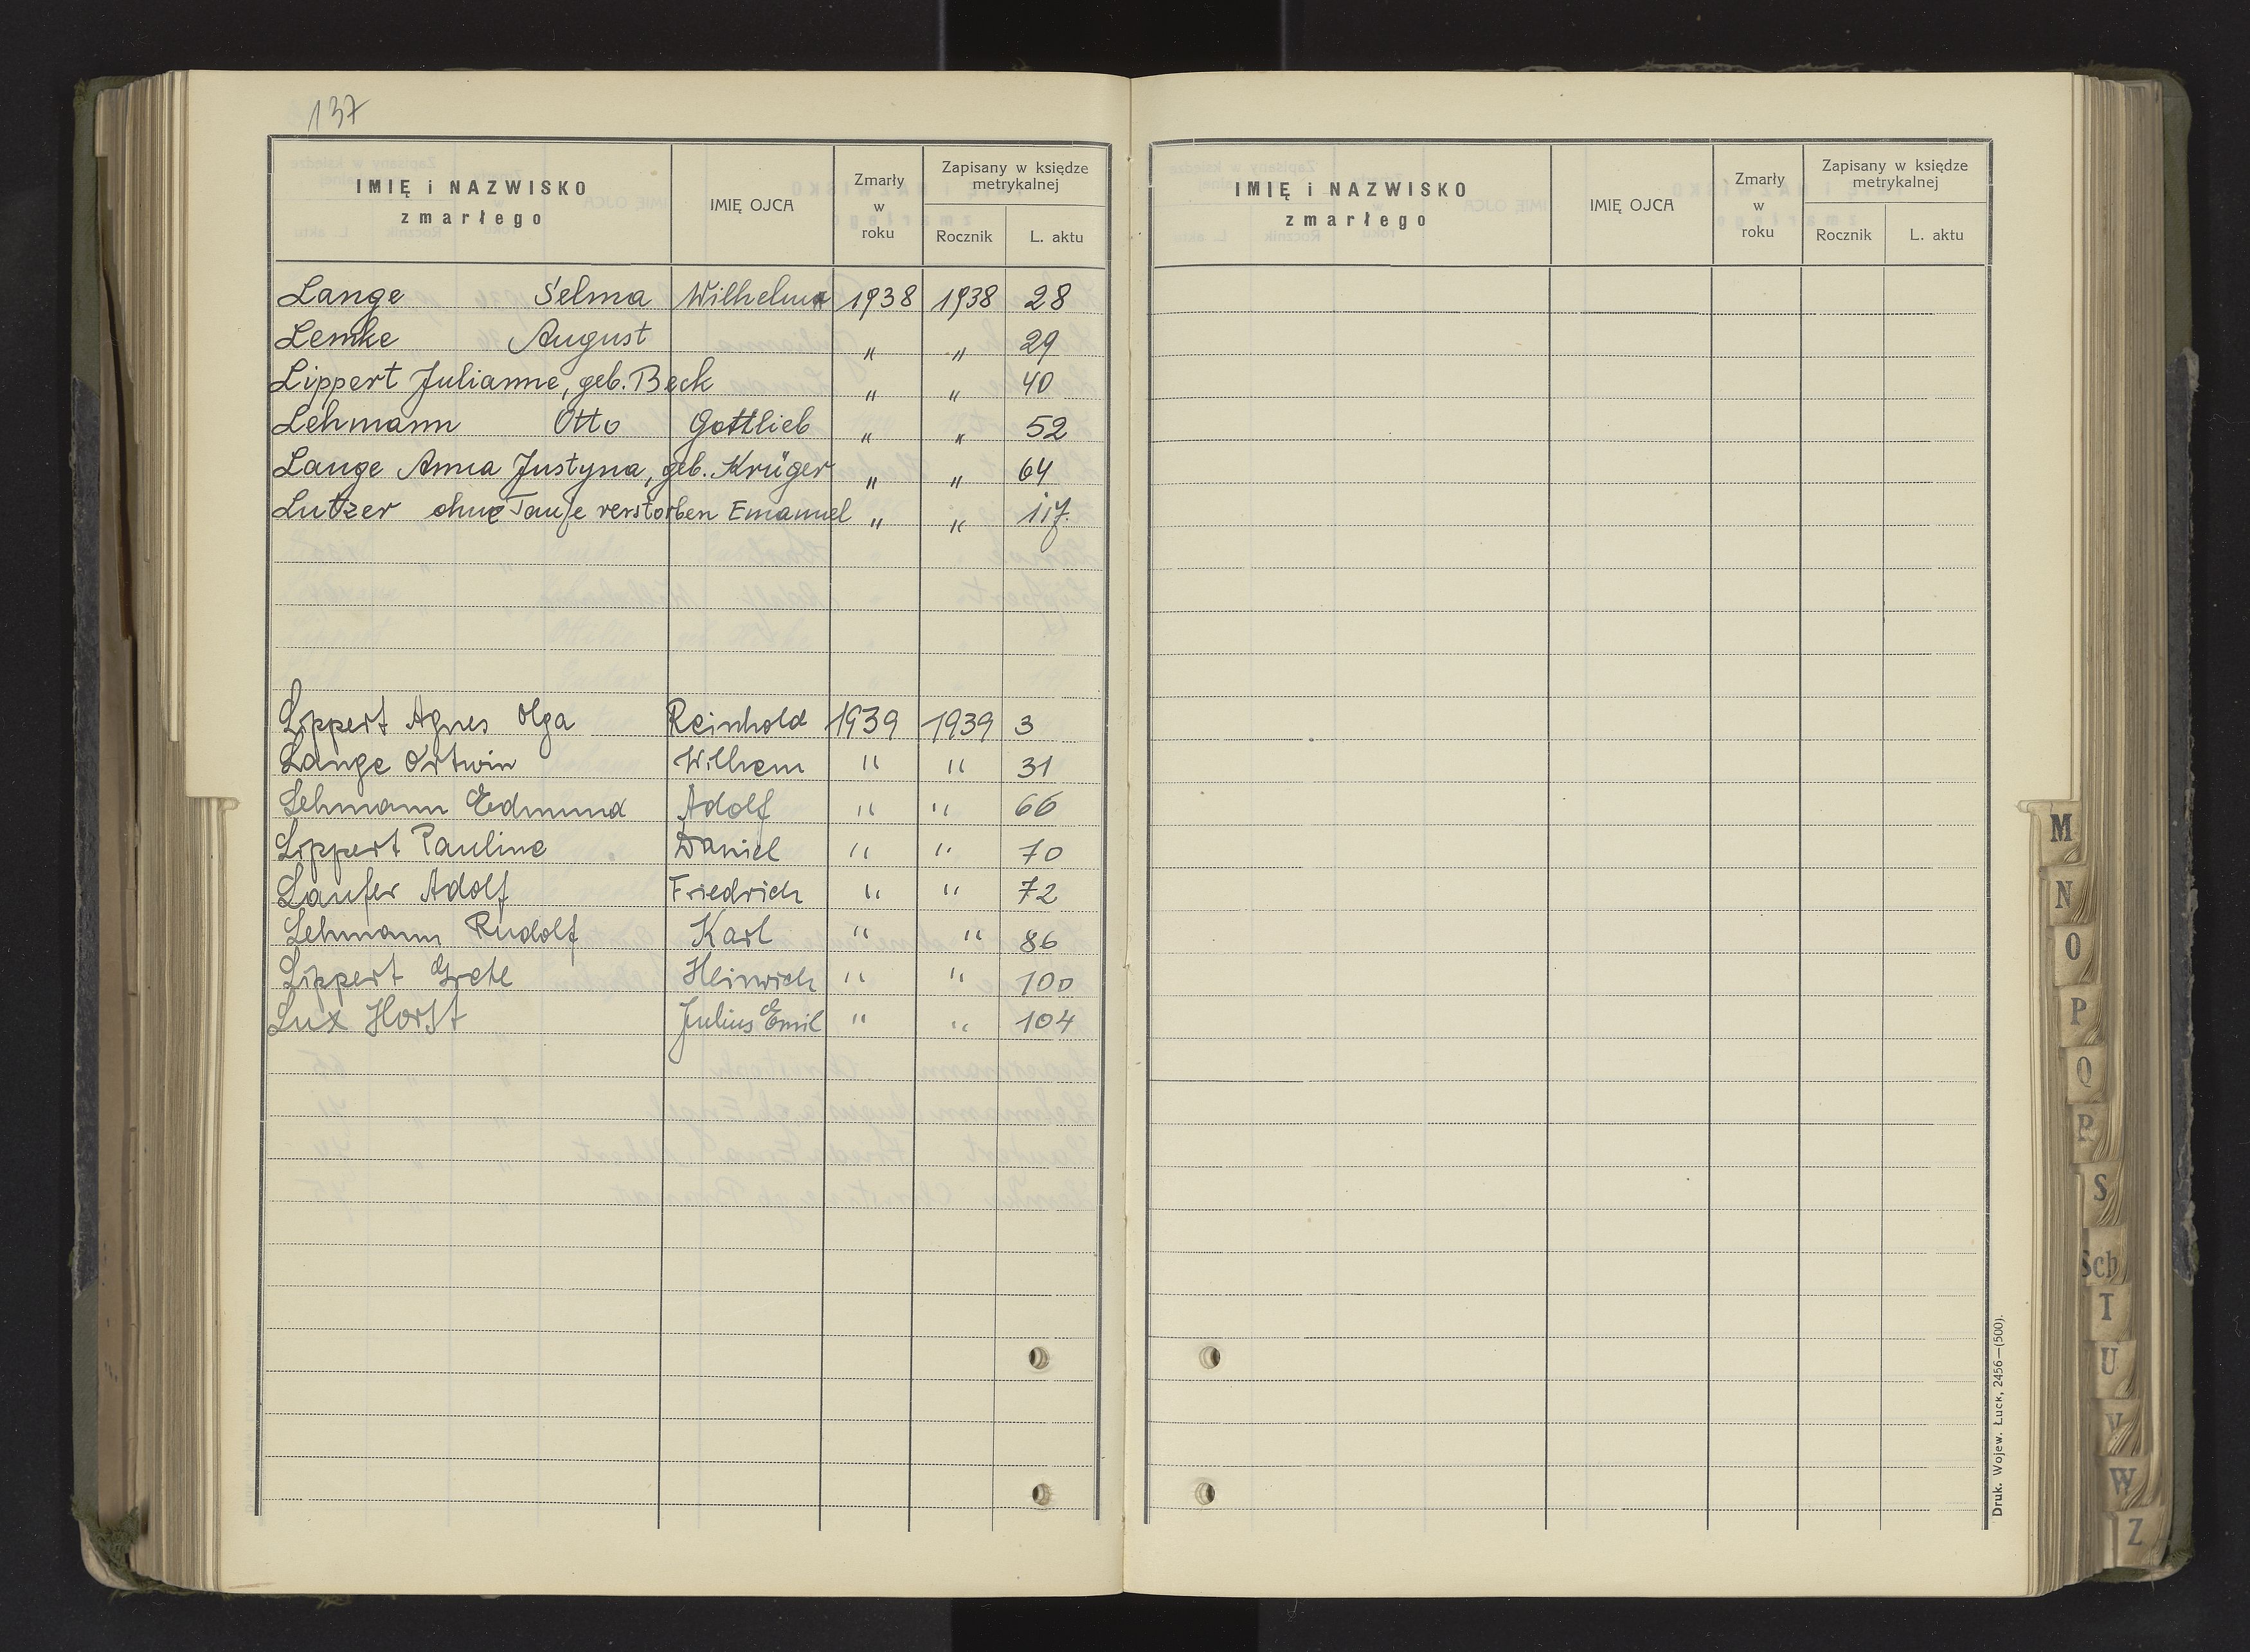 137
IMIĘ i NAZWISKO zmarłego IMIĘ OJCA Zmarły w roku Zapisany w księdze metrykalnej Rocznik L. aktu
Lange Selma Wilhelm 1938 1938 28
Lemke August " " 29
Lippert Julianne, geb. Beck " " 40
Lehmann Otto Gottlieb " " 52
Lange Anna Justyna, geb. Krüger " " 64
Lutzer ohne Taufe verstorben Emanuel " " 117.
Lippert Agnes Olga Reinhold 1939 1939 3
Lange Ortwin Wilhem " " 31
Lehmann Edmund Adolf " " 66
Lippert Pauline Daniel " " 70
Laufer Adolf Friedrich " " 72
Lehmann Rudolf Karl " " 86
Lippert Grete Heinrich " " 100
Lux Horst Julius Emil " " 104
IMIĘ i NAZWISKO zmarłego IMIĘ OJCA Zmarły w roku Zapisany w księdze metrykalnej Rocznik L. aktu
Druk. Wojew. Łuck, 2456—(500).
M
N
O
P
Q
R
S
Sch
T
U
V
W
Z